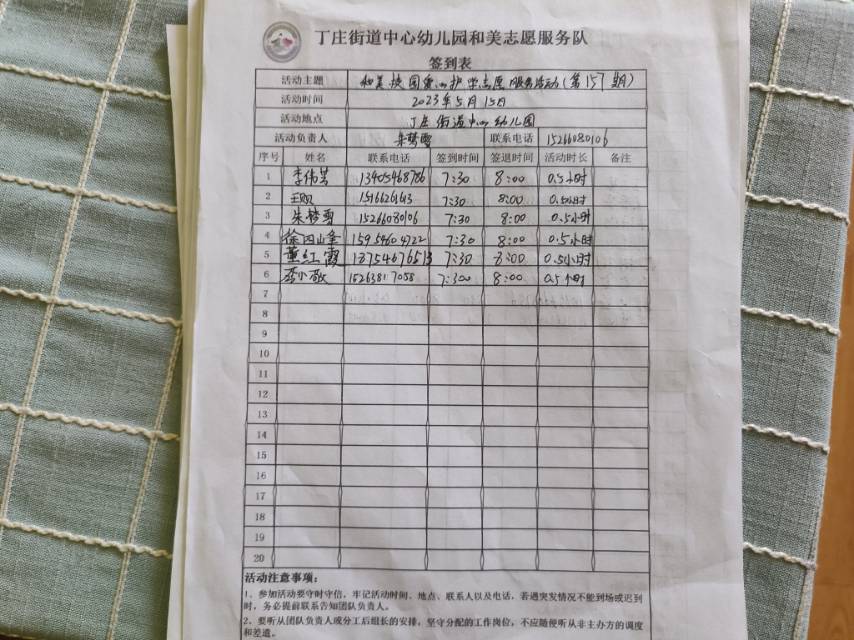 丁庄街道中心幼儿园和美志愿服务队
签到表
活动主题 和美校园爱心护学志愿服务活动(第157期)
活动时间 2023年5月15日
活动地点 丁庄街道中心幼儿园
活动负责人 朱梦雪 联系电话 15266080106
序号 姓名 联系电话 签到时间 签退时间 活动时长 备注
1 李伟芸 13405468786 7:30 8:00 0.5小时
2 7:30 8:00 0.5小时
3 朱梦雪 15266080106 7:30 8:00 0.5小时
4 7:30 8:00 0.5小时
5 董红霞 18754676513 7:30 8:00 0.5小时
6 李小敏 15263817058 7:300 8:00 0.5小时
7
8
9
10
11
12
13
14
15
16
17
18
19
20
活动注意事项:
1、参加活动要守时守信,牢记活动时间、地点、联系人以及电话,若遇突发情况不能到场或迟到
时,务必提前联系告知团队负责人。
2、要听从团队负责人或分工后组长的安排,坚守分配的工作岗位,不应随便听从非主办方的调度
和差遣。